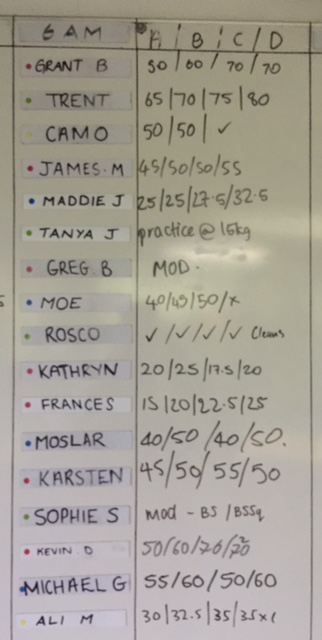 6 AM A / B / C / D
GRANT B 50 / 60 / 70 / 70
TRENT 65 / 70 / 75 / 80
CAMO 50 / 50 / ✓
JAMES. M 45/50/50/55
MADDIE J 25/25/27.5/32.5
TANYA J practice @ 15kg
GREG. B MOD.
MOE 40/45/50/x
ROSCO ✓/✓/✓/✓ Cleans
KATHRYN 20/25/17.5/20
FRANCES 15/20/22.5/25
MOSLAR 40/50/40/50.
KARSTEN 45/50/55/50
SOPHIE S Mod - BS / BSSq
KEVIN D 50/60/70/70
MICHAEL G 55/60/50/60
ALI M 30/32.5/35/35x1